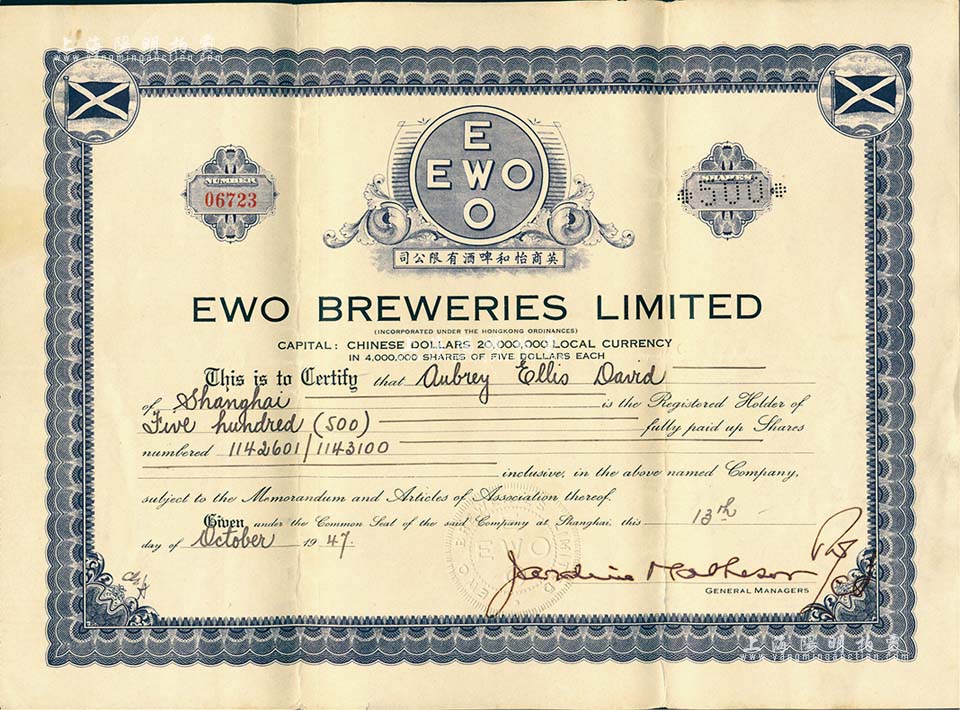 上海陽明拍賣
www.yangmingauction.com
E
EWO
O
NUMBER
06723
SHARES
500
司公限有酒啤和怡商英
EWO BREWERIES LIMITED
(INCORPORATED UNDER THE HONGKONG ORDINANCES)
CAPITAL: CHINESE DOLLARS 20,000,000 LOCAL CURRENCY
IN 4,000,000 SHARES OF FIVE DOLLARS EACH
This is to Certify that Aubrey Ellis David
of Shanghai is the Registered Holder of
Five hundred (500) fully paid up Shares
numbered 1142601/1143100
inclusive, in the above named Company,
subject to the Memorandum and Articles of Association thereof.
Given under the Common Seal of the said Company at Shanghai, this 13th
day of October 1947.
EWO
Jardine Matheson
GENERAL MANAGERS
上海陽明拍賣
www.yangmingauction.com